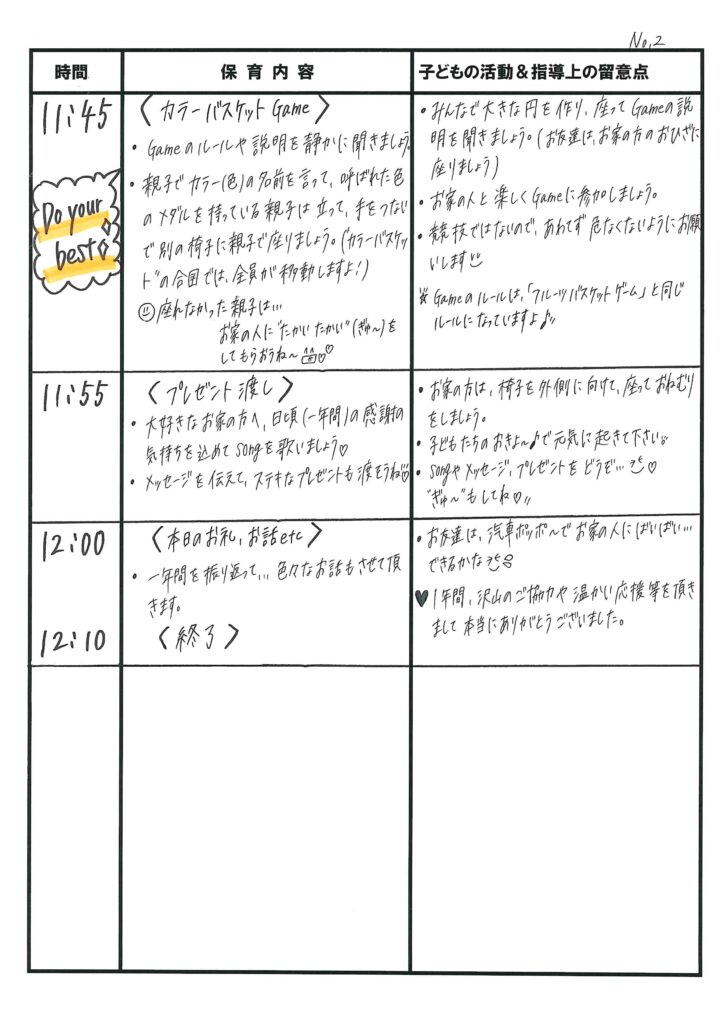 No.2
時間
保育内容
子どもの活動&指導上の留意点
11:45
Do your
best
〈カラーバスケットGame〉
・Gameのルールや説明を静かに聞きましょう。
・親子でカラー(色)の名前を言って、呼ばれた色
のメダルを持っている親子は立って、手をつない
で別の椅子に親子で座りましょう。("カラーバスケッ
ト"の合図では、全員が移動しますよ!)
座れなかった親子は…
お家の人に"たかいたかい"(ぎゅ〜)を
してもらおうね〜♡
・みんなで大きな円を作り、座ってGameの説
明を聞きましょう。(お友達は、お家の方のおひざに
座りましょう)
・お家の人と楽しくGameに参加しましょう。
・競技ではないので、あわてず危なくないようにお願
いします
☆Gameのルールは、「フルーツバスケットゲーム」と同じ
ルールになっていますよ♪
11:55
〈プレゼント渡し〉
・大好きなお家の方へ、日頃(一年間)の感謝の
気持ちを込めてsongを歌いましょう♡
・メッセージを伝えて、ステキなプレゼントも渡そうね♡
・お家の方は、椅子を外側に向けて、座っておねむり
をしましょう。
・子どもたちのおきよ〜♪で元気に起きて下さい。
・songやメッセージ、プレゼントをどうぞ…♡
"ぎゅ〜"もしてね♡
12:00
〈本日のお礼、お話etc〉
・一年間を振り返って…色々なお話もさせて頂
きます。
・お友達は、汽車ポッポ〜でお家の人にばいばい…
できるかな
♥1年間、沢山のご協力や温かい応援等を頂き
まして本当にありがとうございました。
12:10
〈終了〉